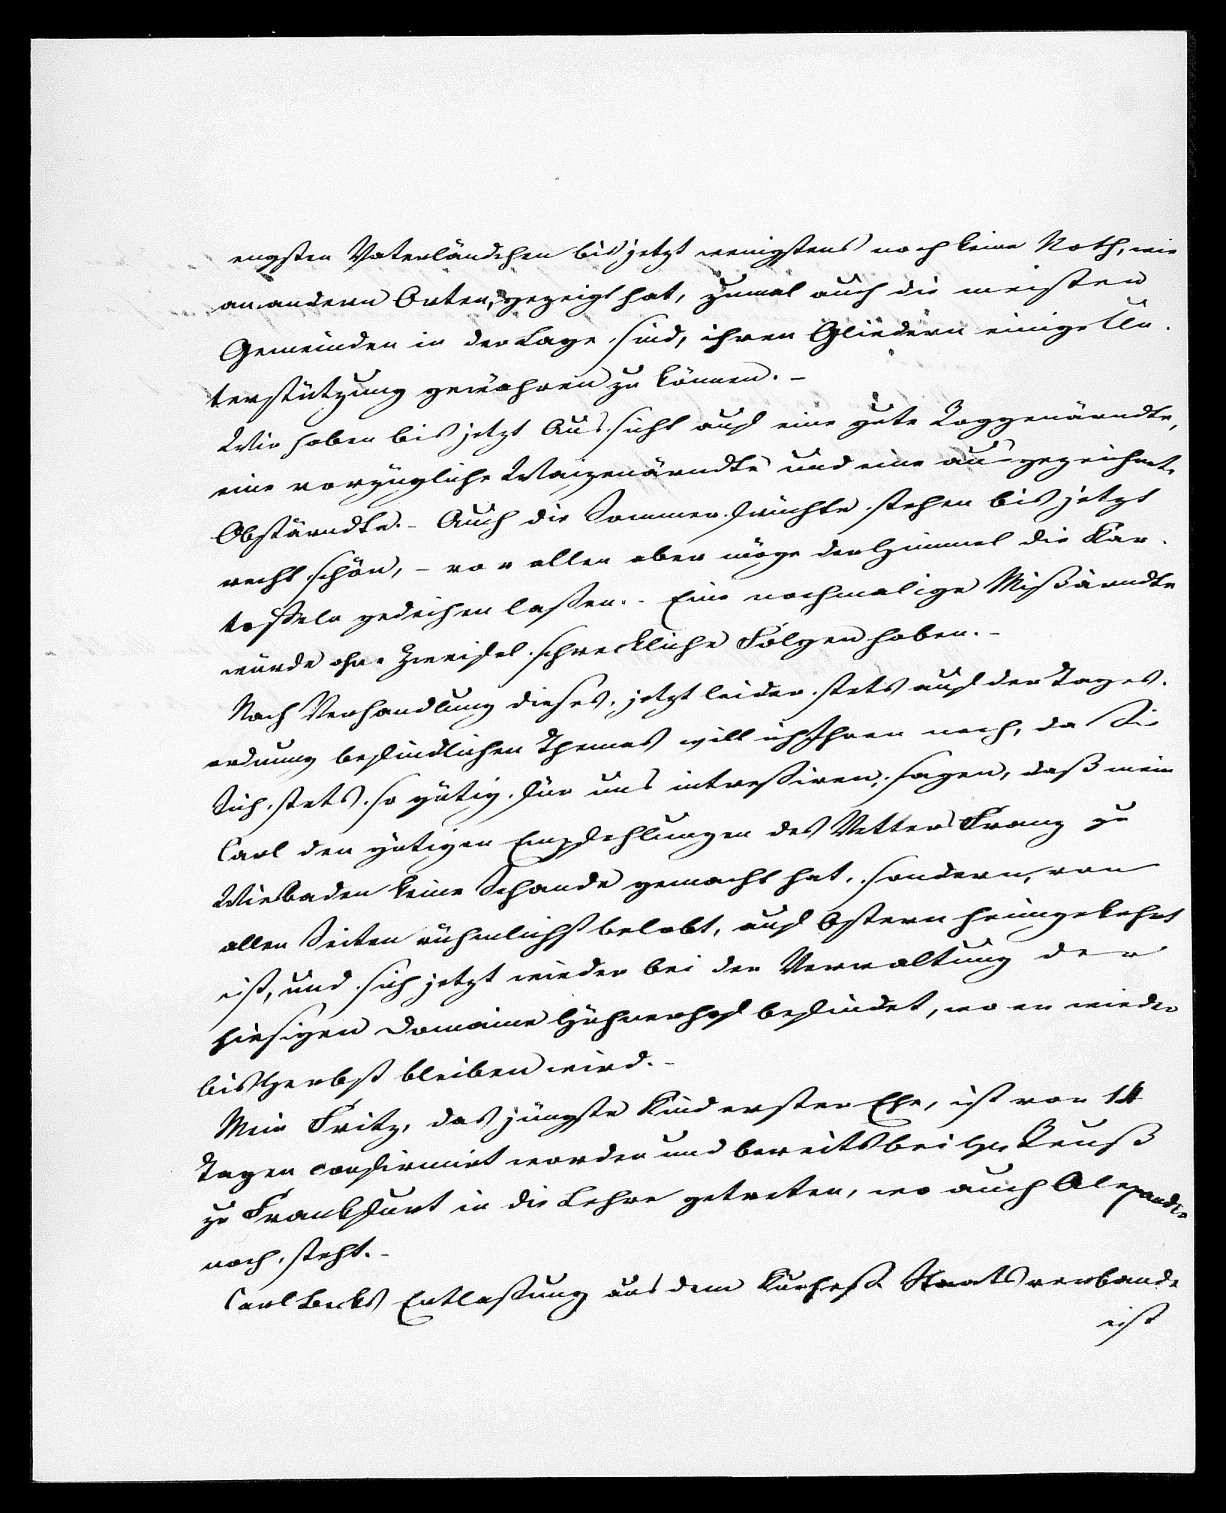 engsten Vaterländchen bis jetzt wenigstens noch keine Noth, wie
an andern Orten, gezeigt hat, zumal auch die meisten
Gemeinden in der Lage sind, ihren Gliedern einige Un-
terstützung gewähren zu können. –
Wir haben bis jetzt Aussicht auf eine gute Roggenärndte,
eine vorzügliche Waizenärndte und eine ausgezeichnete
Obstärndte. – Auch die Sommerfrüchte stehen bis jetzt
recht schön, – vor allen aber möge der Himmel die Kar-
toffeln gedeihen laßen. – Eine nochmalige Mißärndte
würde ohne Zweifel schreckliche Folgen haben. –
Nach Verhandlung dieses, jetzt leider stets auf der Tages-
ordnung befindlichen Themas will ich Ihnen noch, da Sie
Sich stets so gütig für uns intreßiren, sagen, daß mein
Carl den gütigen Empfehlungen des Vetters Franz zu
Wiesbaden keine Schande gemacht hat, sondern, von
allen Seiten rühmlichst belobt, auf Ostern heimgekehrt
ist, und sich jetzt wieder bei der Verwaltung der
hiesigen Domaine Hühnerhof befindet, wo er wieder
bis Herbst bleiben wird. –
Mein Fritz, das jüngste Kind erster Ehe, ist vor 14
Tagen confirmirt worden und bereits bei Hr. Reuß
zu Frankfurt in die Lehre getreten, wo auch Alexander
noch steht. –
Carl Becks Entlaßung aus dem Kurheß. Staatsverbande
ist